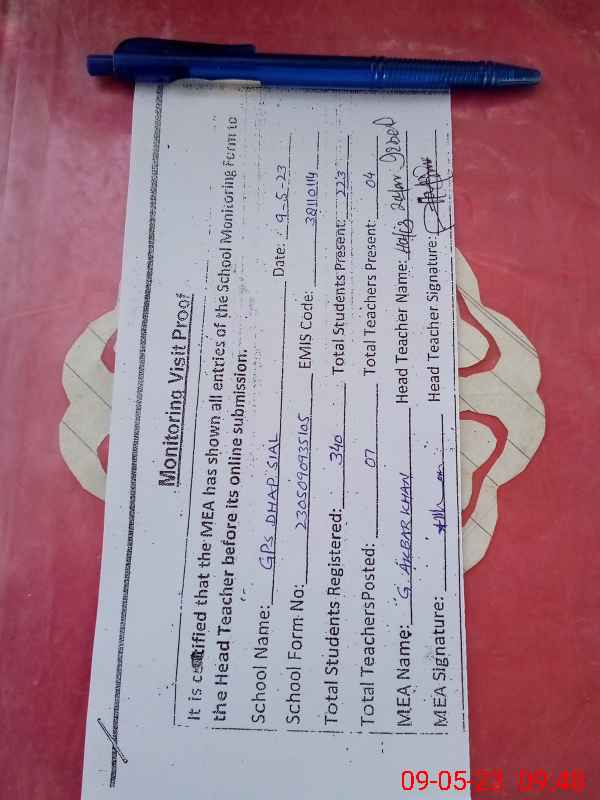 Monitoring Visit Proof
It is certified that the MEA has shown all entries of the School Monitoring Form to
the Head Teacher before its online submission.
School Name: GPS DHAP SIAL Date: 9-5-23
School Form No: 2305090935105 EMIS Code: 38110114
Total Students Registered: 340 Total Students Present: 223
Total Teachers Posted: 07 Total Teachers Present: 04
MEA Name: G. AKBAR KHAN Head Teacher Name: Hafiz
MEA Signature: Head Teacher Signature:
09-05-23 09:48